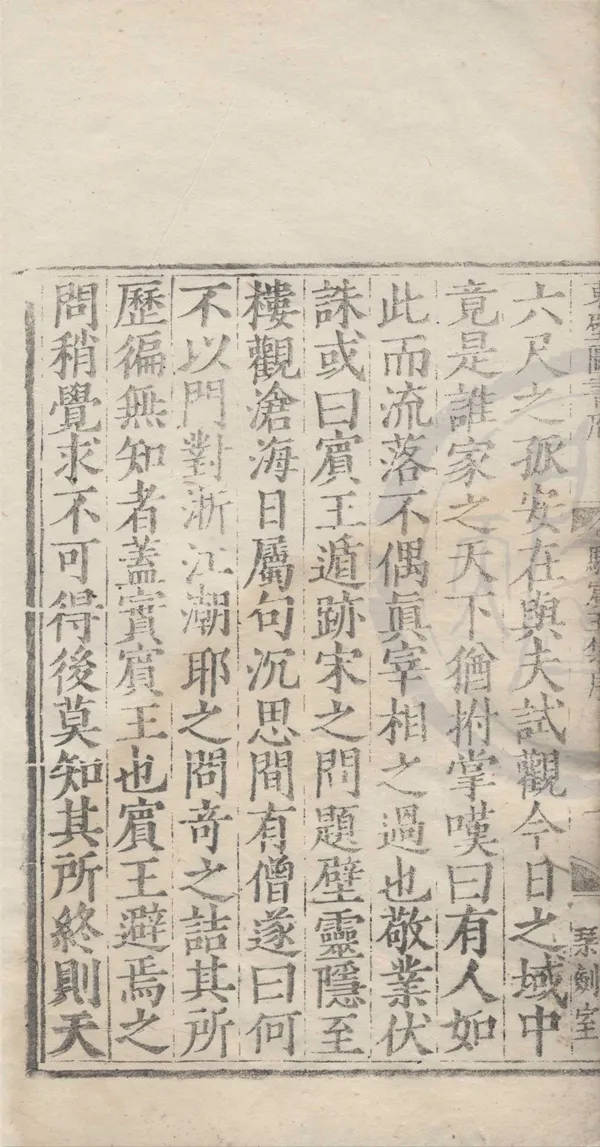 東壁圖書府
駱賓王集序
琴劍室
六尺之孤安在與夫試觀今日之域中
竟是誰家之天下猶拊掌嘆曰有人如
此而流落不偶眞宰相之過也敬業伏
誅或曰賓王遁跡宋之問題壁靈隱至
樓觀滄海日屬句沉思間有僧遂曰何
不以門對浙江潮耶之問奇之詰其所
歷徧無知者蓋實賓王也賓王避焉之
問稍覺求不可得後莫知其所終則天